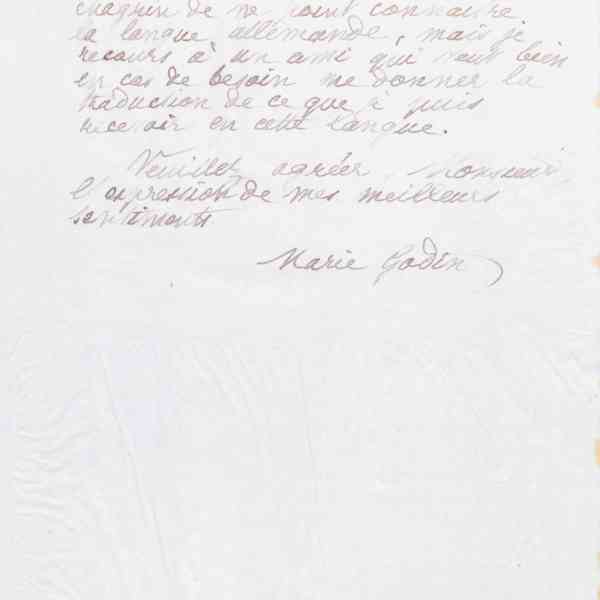 chagrin de ne point connaître
la langue allemande, mais je
recours à un ami qui veut bien
en cas de besoin me donner la
traduction de ce que je puis
recevoir en cette langue.
Veuillez agréer, Monsieur,
l'expression de mes meilleurs
sentiments
Marie Godin